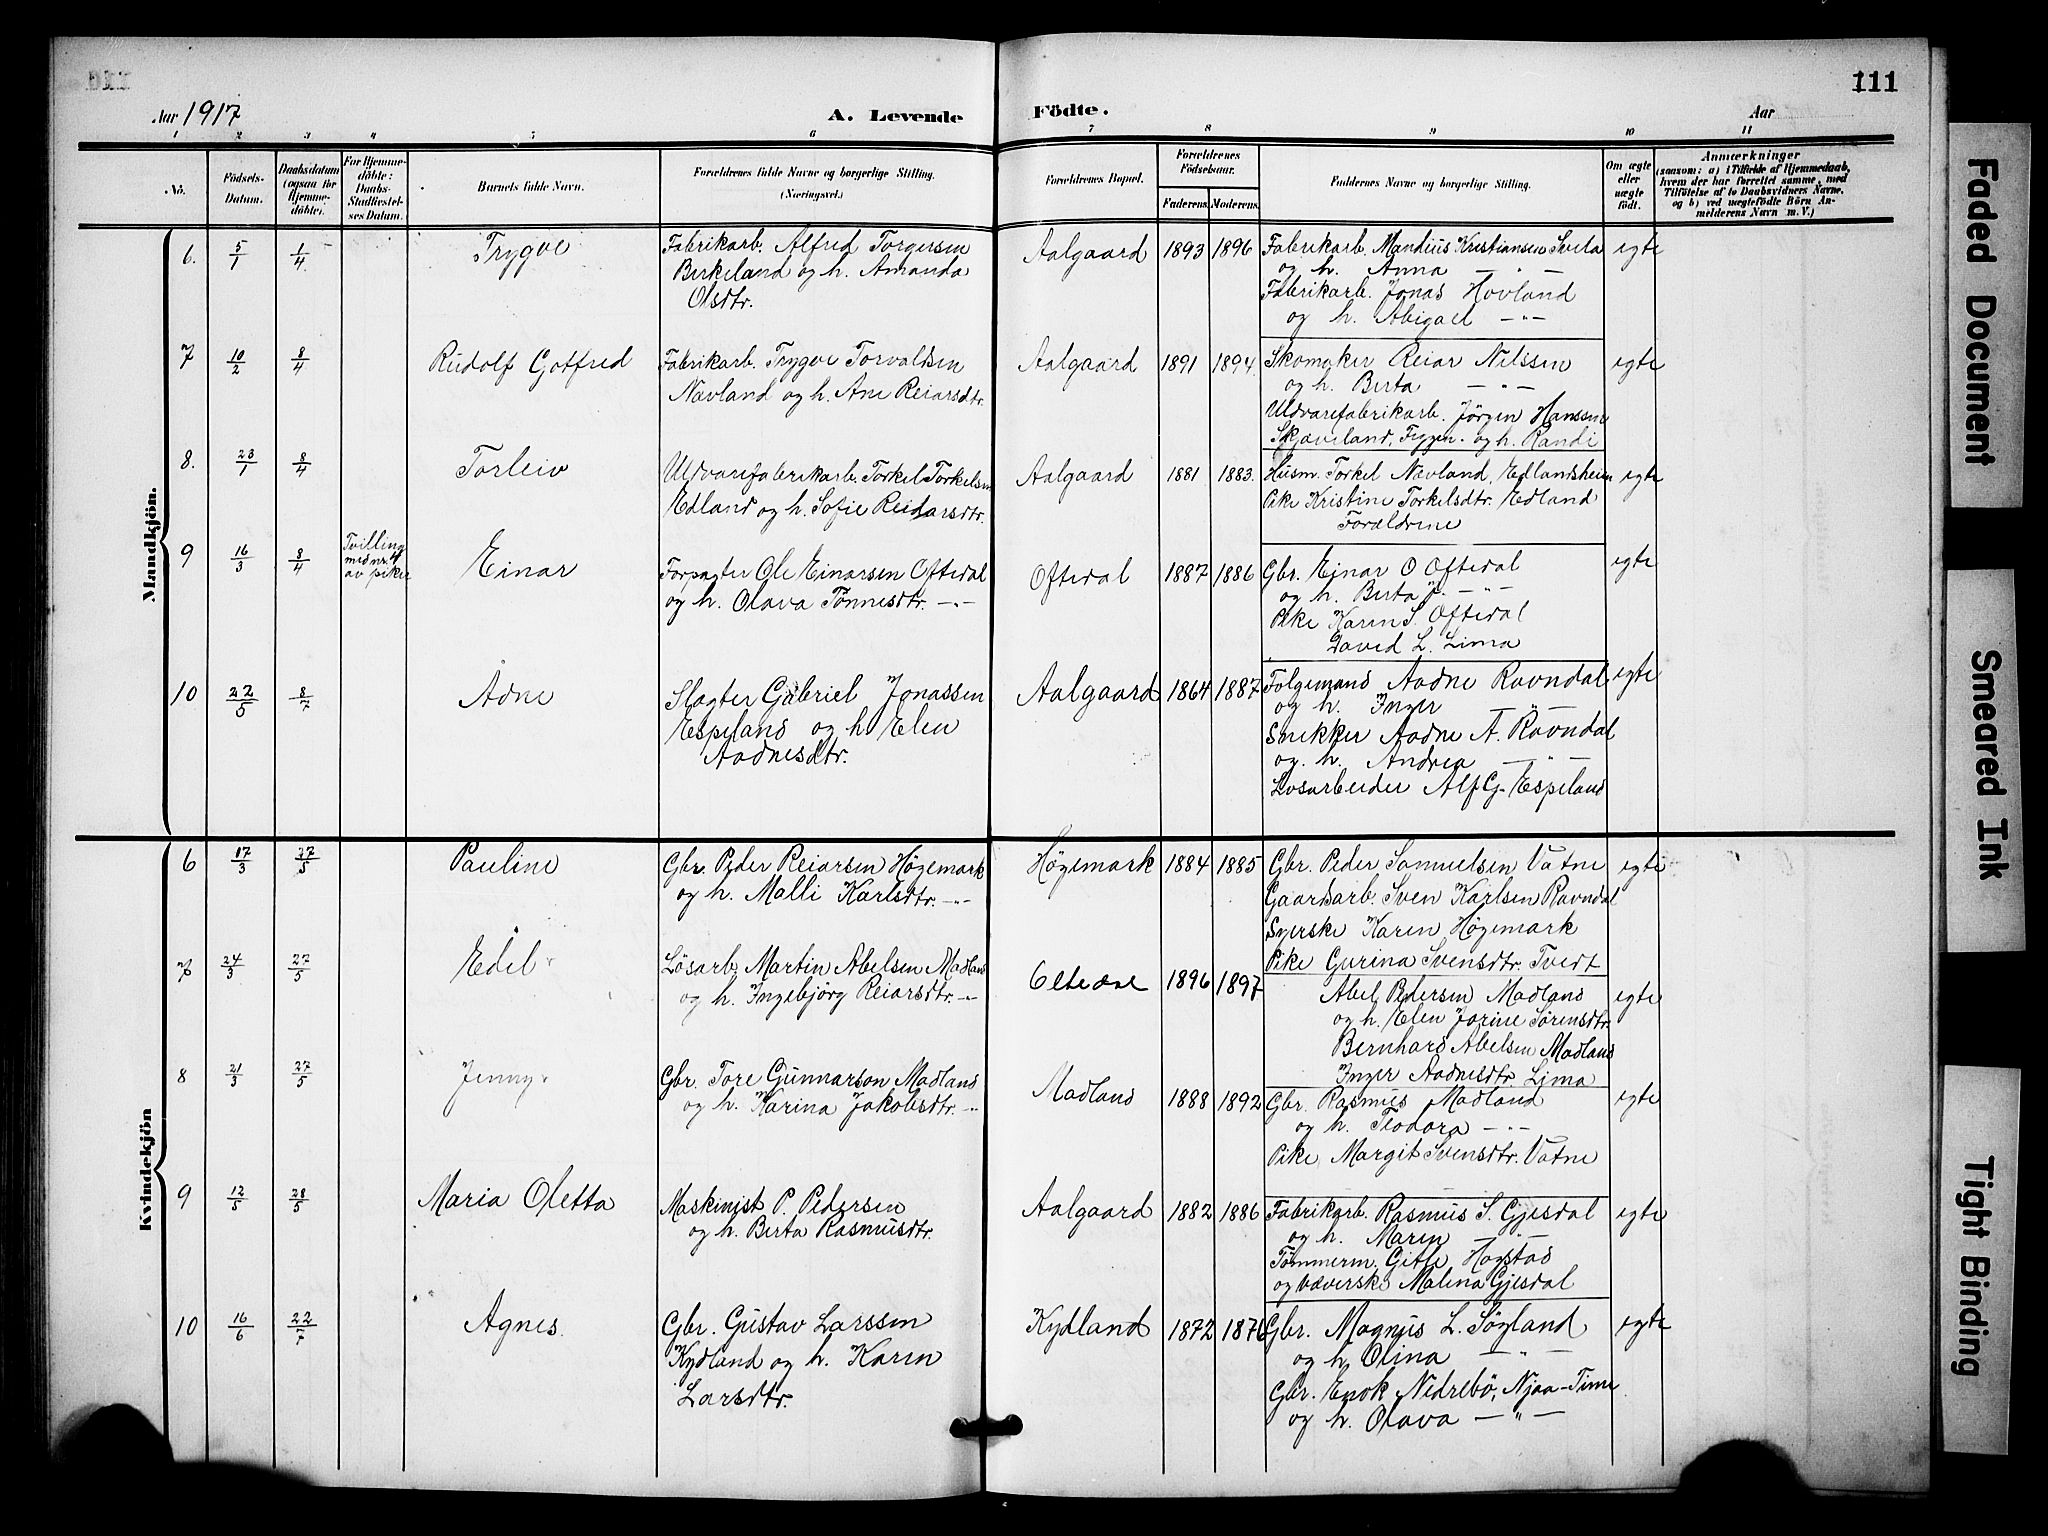 111
Aar 1917
A. Levende
Födte.
Aar
1 2 3 4 5 6 7 8 9 10 11
No.
Födsels-
Datum.
Daabsdatum
(ogsaa for
Hjemme-
döbte).
For Hjemme-
döbte:
Daabs-
Stadfæstel-
ses Datum.
Barnets fulde Navn.
Forældrenes fulde Navne og borgerlige Stilling.
(Næringsvei.)
Forældrenes Bopæl.
Forældrenes
Födselsaar.
Faderens. Moderens.
Faddernes Navne og borgerlige Stilling.
Om ægte
eller
uægte
födt.
Anmærkninger
(saasom: a) i Tilfælde af Hjemmedaab,
hvem der har forrettet samme, med
Tilföielse af to Daabsvidners Navne,
og b) ved uægtefödte Börn An-
melderens Navn m. V.)
Mandkjön.
6. 5/1 1/4 Trygve
Fabrikarb. Alfred Torgersen
Birkeland og h. Amanda
Olsdtr.
Aalgaard 1893 1896
Fabrikarb. Mandius Kristiansen Svela
og h. Anna — " —
Fabrikarb. Jonas Hovland
og h. Abigael — " —
egte
7 10/2 8/4 Rudolf Gotfred
Fabrikarb. Trygve Torvaldsen
Nævland og h. Ane Reiarsdtr.
Aalgaard 1891 1894.
Skomaker Reiar Nilssen
og h. Berta — " —
Uldvarefabrikarb. Jörgen Hanssen
Skjæveland, Figgen. og h. Randi
egte
8. 23/1 8/4 Torleiv
Uldvarefabrikarb. Torkel Torkelsen
Edland og h. Sofie Reidarsdtr.
Aalgaard 1881 1883.
Husm. Torkel Nævland, Edlandsheien
Pike Kristine Torkelsdtr. Edland
Forældrene
egte
9 16/3 8/4
Tvilling
med nr. 4
av piker
Einar
Forpagter Ole Einarsen Oftedal
og h. Olava Tönnesdtr. — " —
Oftedal 1887 1886
Gbr. Einar O Oftedal
og h. Berta J. — " —
Pike Karen S. Oftedal
David L. Lima
egte
10 22/5 8/7 Adne
Slagter Gabriel Jonassen
Espeland og h Elen
Aadnesdtr.
Aalgaard 1864 1887
Folgemand Aadne Ravndal
og h. Inger — " —
Snekker Aadne A. Ravndal
og. h. Andrea — " —
Løsarbeider Alf G. Espeland
egte
Kvindekjön
6 17/3 27/5 Pauline
Gbr. Peder Reiarsen Høgemark
og h. Malli Karlsdtr. — " —
Høgemark 1884 1885
Gbr. Peder Samuelsen Vatne
Gaardarb. Sven Karlsen Ravndal
Syerske Karen Høgemark
Pike Gurina Svensdtr. Tvedt
egte
7 24/3 27/5 Edel
Løsarb. Martin Abelsen Madland
og h. Ingebjörg Reiarsdtr. — " —
Oltedal 1896 1897
Abel Pedersen Madland
og h. Elen Jorine Sörensdtr.
Bernhard Abelsen Madland
Inger Aadnesdtr Lima
egte
8 21/3 27/5 Jenny
Gbr. Tore Gunnarson Madland
og h. Karina Jakobsdtr. — " —
Madland 1888 1892
Gbr. Rasmus Madland
og h. Teodora — " —
Pike Margit Svensdtr. Vatne
egte
9 12/5 28/5 Maria Oletta
Maskinist P. Pedersen
og h. Berta Rasmusdtr.
Aalgaard 1882 1886
Fabrikarb. Rasmus S. Gjesdal
og h. Maren — " —
Tömmerm. Gitle Hogstad
og væverske Malena Gjesdal
egte
10 16/6 22/7 Agnes.
Gbr. Gustav Larssen
Kydland og h. Karen
Larsdtr.
Kydland 1872 1876
Gbr. Magnus L. Söyland
og h. Olina — " —
Gbr. Enok Nedrebö, Njaa-Time
og h. Olava — " —
egte
Faded Document
Smeared Ink
Tight Binding